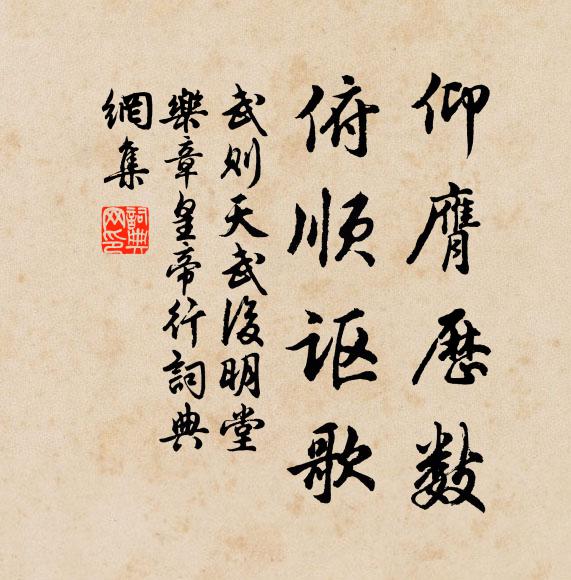 仰膺歷数
俯順讴歌
武则天武後明堂
樂章皇帝行詞典
網集
詞典
网印